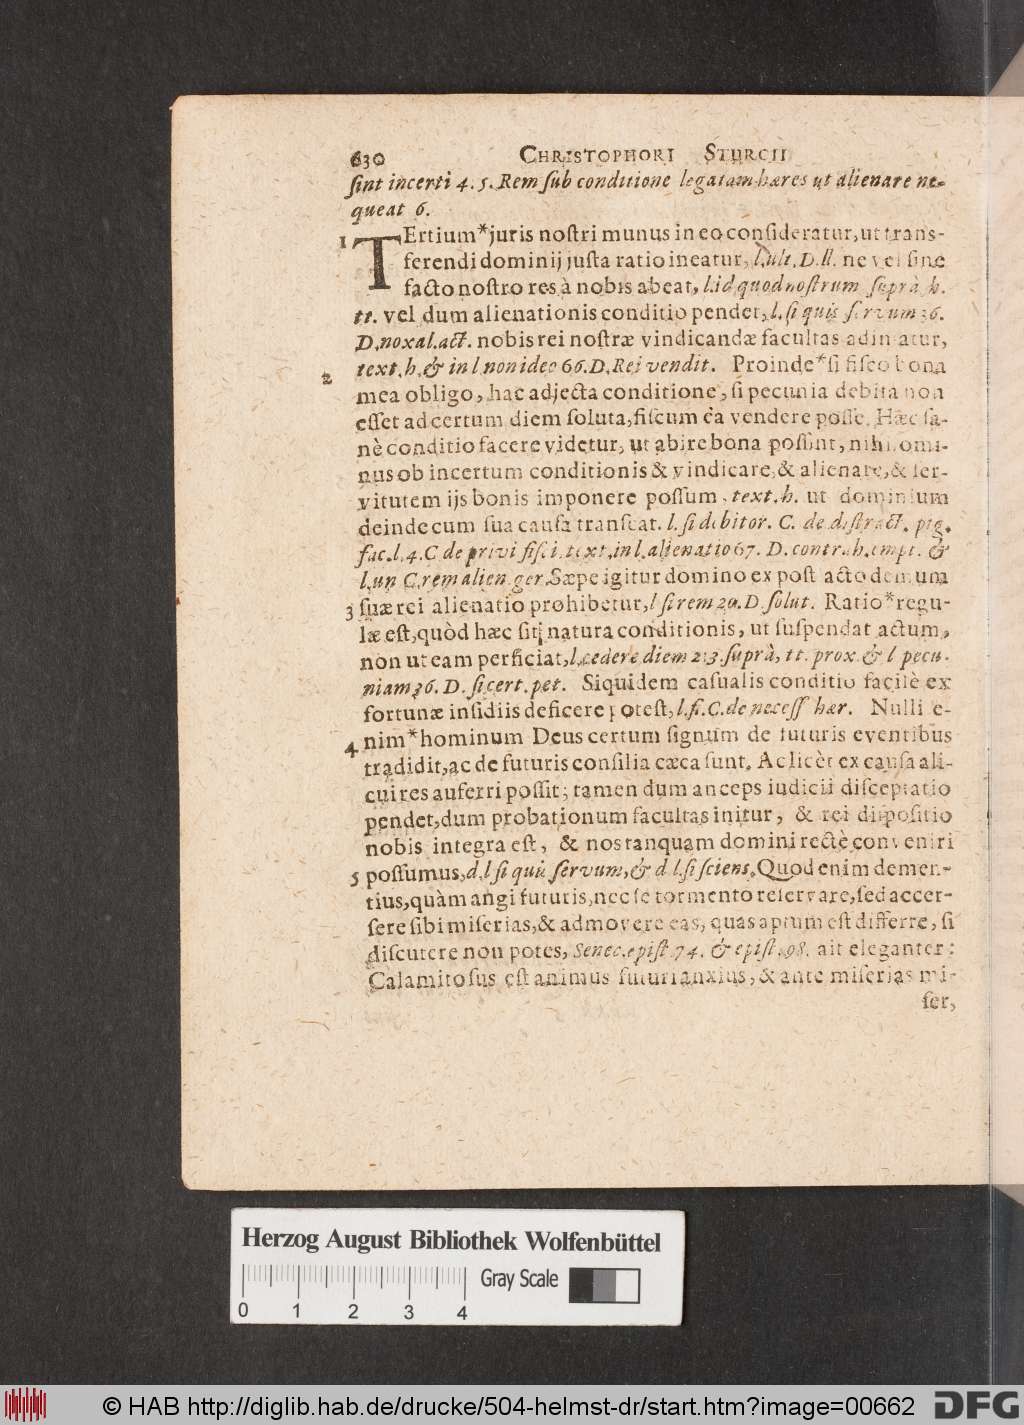 630 CHRISTOPHORI STURCII
ſint incerti 4. 5. Rem ſub conditione legatam hæres ut alienare ne-
queat 6.
1 TErtium*juris noſtri munus in eo conſideratur, ut trans-
ferendi dominij juſta ratio ineatur, l.ult.D.ll. ne vel ſine
facto noſtro res à nobis abeat, l.id quod noſtrum ſuprà h.
tt. vel dum alienationis conditio pendet, l.ſi quis ſervum 36.
D.noxal.act. nobis rei noſtræ vindicandæ facultas adimatur,
2 text.h.& in l.non ideo 66.D.Rei vendit. Proinde*ſi fiſco bona
mea obligo, hac adjecta conditione, ſi pecunia debita non
eſſet ad certum diem ſoluta, fiſcum ea vendere poſſe. Hæc ſa-
nè conditio facere videtur, ut abire bona poſſint, nihilomi-
nus ob incertum conditionis & vindicare, & alienare, & ſer-
vitutem ijs bonis imponere poſſum, text.h. ut dominium
deinde cum ſua cauſa tranſeat. l.ſi debitor. C. de diſtract. pig.
fac.l.4.C de privi fiſci, text.in l.alienatio 67. D. contrah.empt. &
l.un C.rem alien ger. Sæpe igitur domino ex poſt acto demum
3 ſuæ rei alienatio prohibetur, l ſi rem 20.D.ſolut. Ratio*regu-
læ eſt, quòd hæc ſit natura conditionis, ut ſuſpendat actum,
non ut eam perficiat, l.cedere diem 213.ſuprà, tt. prox. & l pecu-
niam 36. D. ſi cert.pet. Siquidem caſualis conditio facilè ex
fortunæ inſidiis deficere poteſt, l.fi.C.de neceſſ hær. Nulli e-
4 nim*hominum Deus certum ſignum de futuris eventibus
tradidit, ac de futuris conſilia cæca ſunt. Ac licèt ex cauſa ali-
cui res auferri poſſit; tamen dum anceps iudicii diſceptatio
pendet, dum probationum facultas initur, & rei diſpoſitio
nobis integra eſt, & nos tanquam domini rectè conveniri
5 poſſumus, d.l ſi quis ſervum, & d l.ſi ſciens. Quod enim demen-
tius, quàm angi futuris, nec ſe tormento reſervare, ſed accer-
ſere ſibi miſerias, & admovere eas, quas aptum eſt differre, ſi
diſcutere non potes, Senec.epiſt.74. & epiſt.98. ait eleganter:
Calamitoſus eſt animus futuri anxius, & ante miſerias mi-
ſer,
Herzog August Bibliothek Wolfenbüttel
Gray Scale
0 1 2 3 4
© HAB http://diglib.hab.de/drucke/504-helmst-dr/start.htm?image=00662
DFG